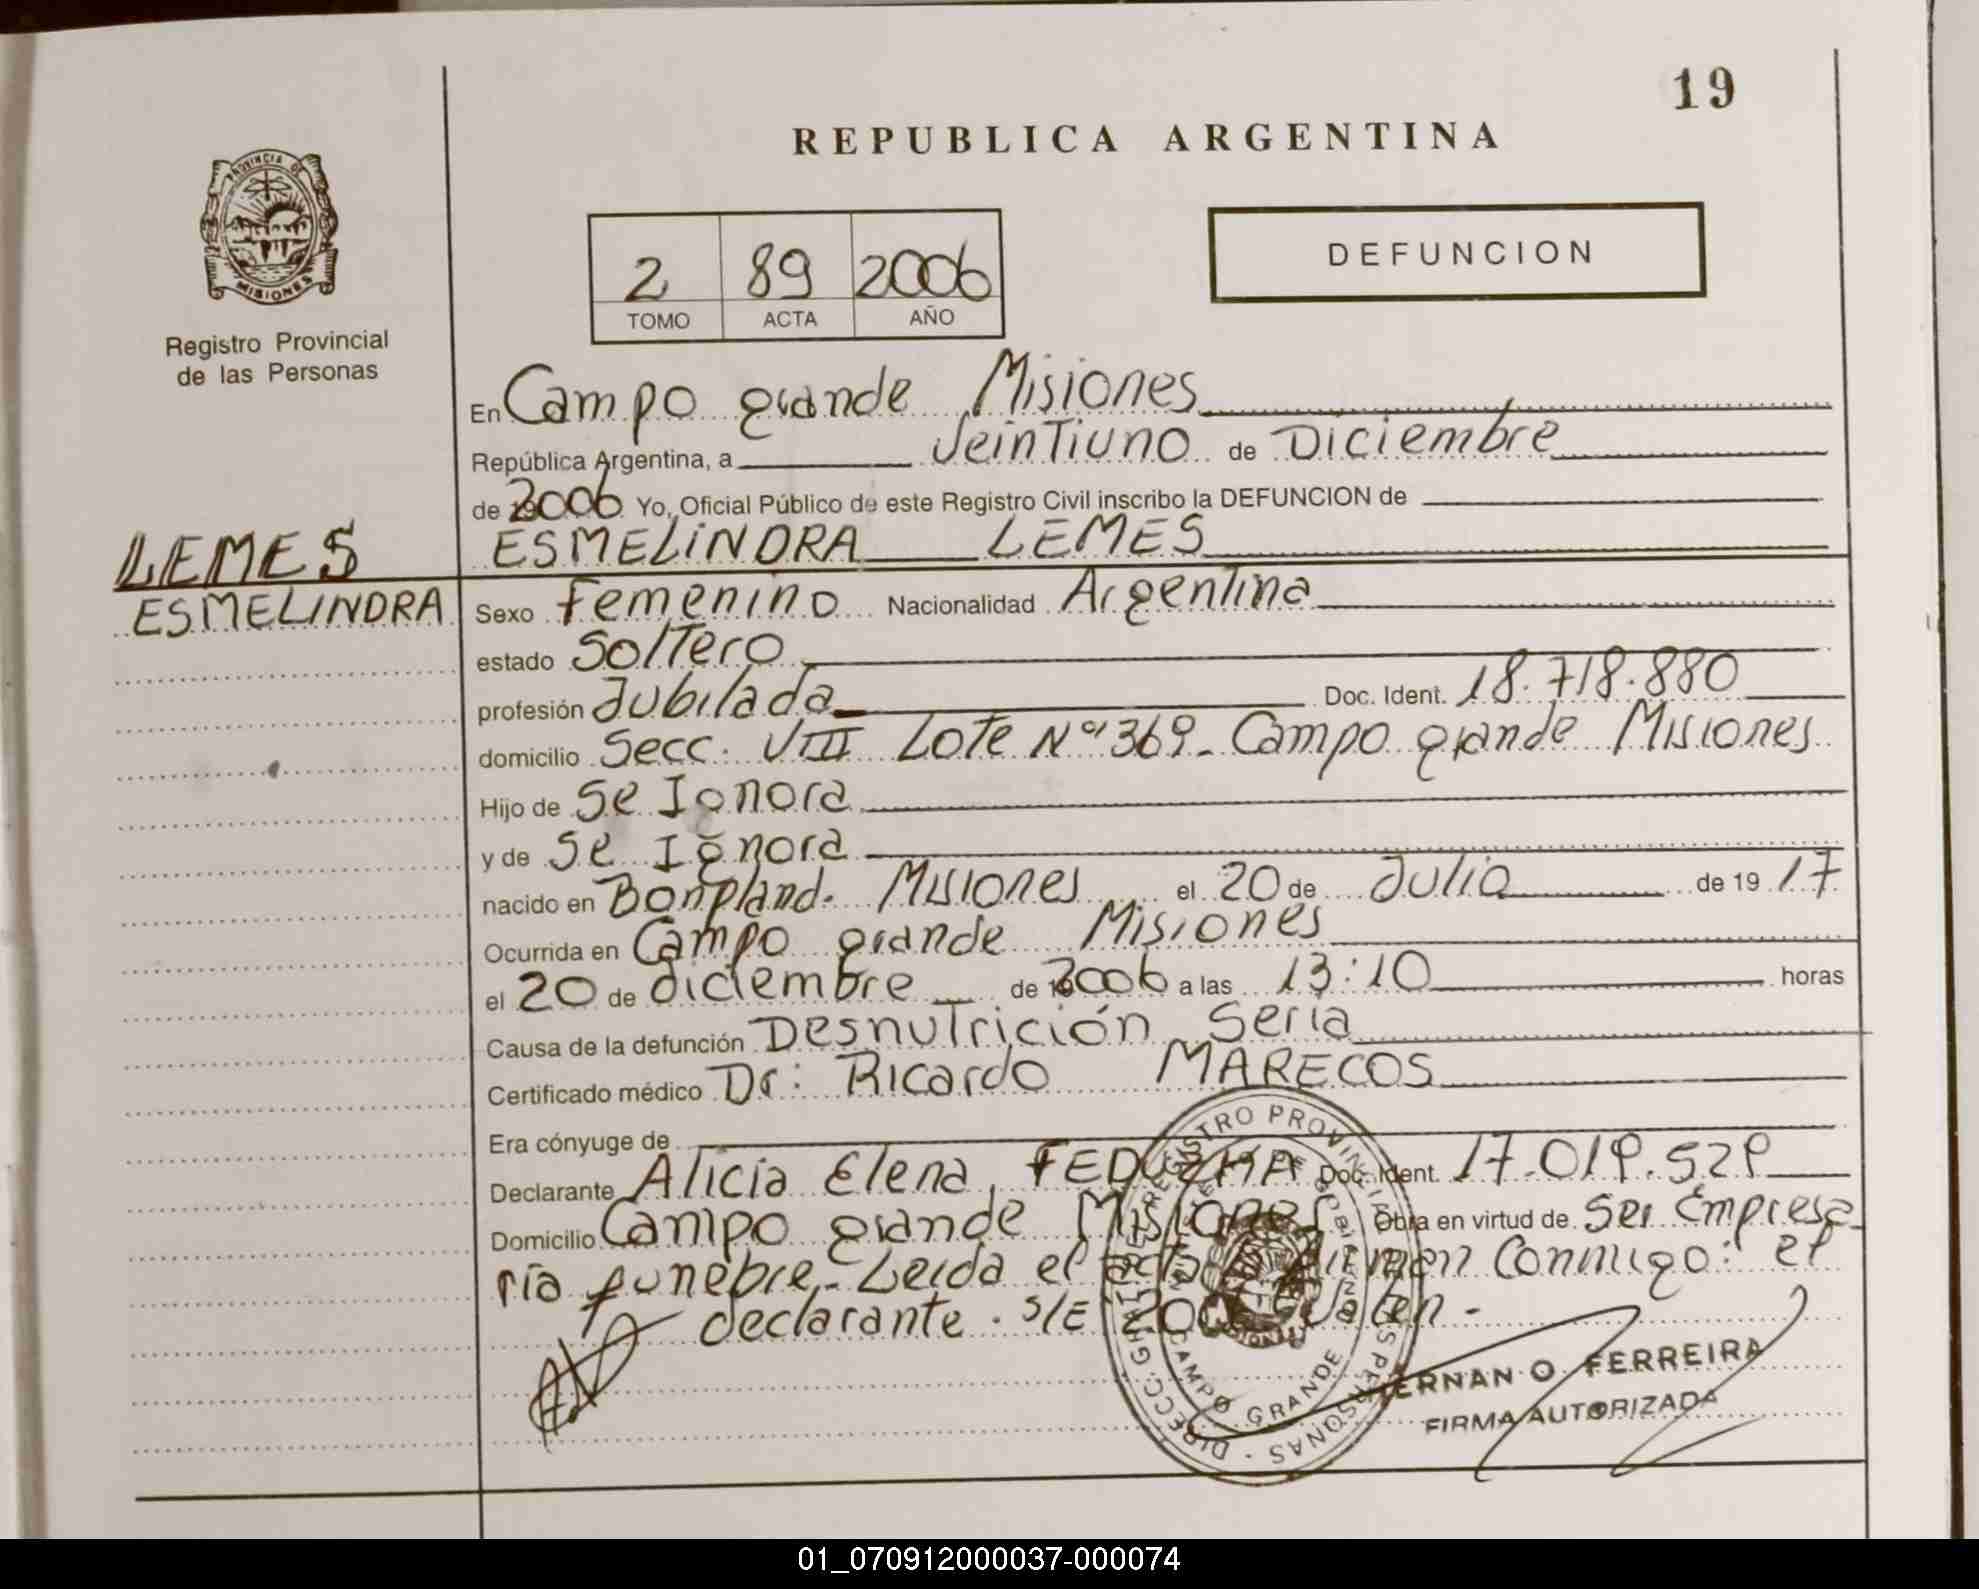 19
REPUBLICA ARGENTINA
PROVINCIA DE
MISIONES
Registro Provincial
de las Personas
2 89 2006
TOMO ACTA AÑO
DEFUNCION
En Campo grande Misiones
República Argentina, a Veintiuno de Diciembre
de 2006 Yo, Oficial Público de este Registro Civil inscribo la DEFUNCION de
ESMELINDRA LEMES
LEMES
ESMELINDRA
Sexo Femenino Nacionalidad Argentina
estado Soltero
profesión Jubilada Doc. Ident. 18.718.880
domicilio Secc. VIII Lote Nº 369- Campo grande Misiones
Hijo de Se Ignora
y de Se Ignora
nacido en Bonpland. Misiones el 20 de Julio de 19 17
Ocurrida en Campo grande Misiones
el 20 de diciembre de 2006 a las 13:10 horas
Causa de la defunción Desnutrición Seria
Certificado médico Dr: Ricardo MARECOS
Era cónyuge de
Declarante Alicia Elena, Doc. Ident. 17.019.529
Domicilio Campo grande Misiones Obra en virtud de Ser Empresa
ria funebre.- Leida el acta firman Conmigo: el
declarante. S/E 2006 Valen.-
DIRECC. GRAL. DEL REGISTRO PROVINCIAL DE LAS PERSONAS
CAMPO GRANDE
HERNAN O. FERREIRA
FIRMA AUTORIZADA
01_070912000037-000074